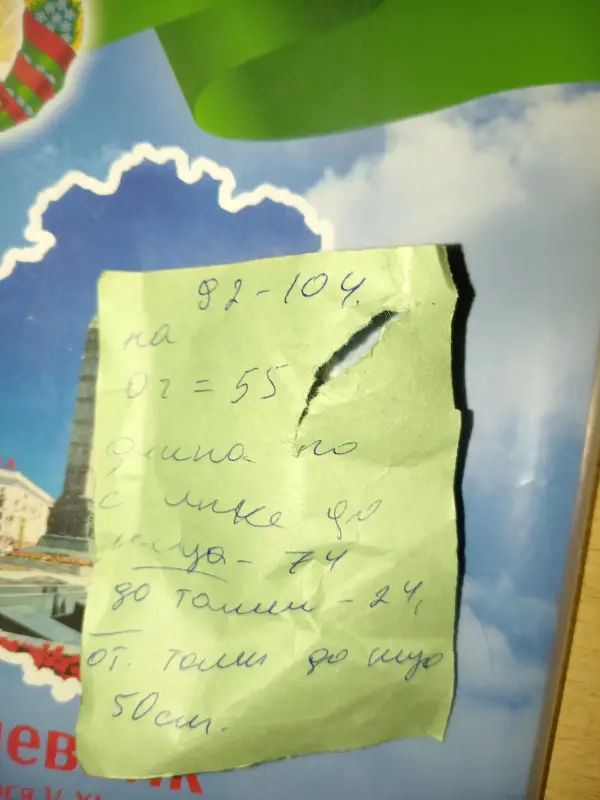 92-104.
на
Ог = 55
длина по
спинке до
низа - 74
до талии - 24,
от. талии до низа
50 см.